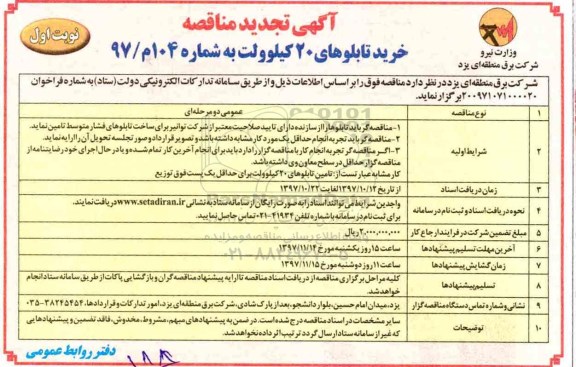 آگهی تجدید مناقصه
خرید تابلوهای ۲۰ کیلوولت به شماره ۱۰۴م/۹۷
نوبت اول
وزارت نیرو
شرکت برق منطقه‌ای یزد
شرکت برق منطقه‌ای یزد در نظر دارد مناقصه فوق را بر اساس اطلاعات ذیل و از طریق سامانه تدارکات الکترونیکی دولت (ستاد) به شماره فراخوان
۲۰۰۹۷۱۰۷۱۰۰۰۰۲۰ برگزار نماید.
۱ نوع مناقصه عمومی دو مرحله‌ای
۲ شرایط اولیه
۱- مناقصه‌گر باید تابلوها را از سازنده دارای تاییدصلاحیت معتبر از شرکت توانیر برای ساخت تابلوهای فشار متوسط تامین نماید.
۲- مناقصه‌گر باید تجربه انجام حداقل یک مورد کار مشابه داشته باشد و تصویر قرارداد و صورتجلسه تحویل آن را ارایه نماید.
۳- اگر مناقصه‌گر تجربه انجام کار با مناقصه‌گزار را دارد باید برای انجام آخرین کار تمام شده و یا در حال اجرای خود رضایتنامه از
مناقصه‌گزار حداقل در سطح معاون وی داشته باشد.
کار مشابه عبارتست از: تامین تابلوهای ۲۰ کیلوولت برای حداقل یک پست فوق توزیع
۳ زمان دریافت اسناد از تاریخ ۱۳۹۷/۱۰/۱۳ لغایت ۱۳۹۷/۱۰/۲۲
۴ نحوه دریافت اسناد و ثبت نام در سامانه
واجدین شرایط می‌توانند اسناد را به صورت رایگان از سامانه ستاد به نشانی www.setadiran.ir دریافت نمایند.
برای ثبت نام در سامانه با شماره تلفن ۴۱۹۳۴-۰۲۱ تماس حاصل نمایید.
۵ مبلغ تضمین شرکت در فرایند ارجاع کار ۲,۰۰۰,۰۰۰,۰۰۰ ریال
۶ آخرین مهلت تسلیم پیشنهادها ساعت ۱۵ روز یکشنبه مورخ ۱۳۹۷/۱۱/۱۴
۷ زمان گشایش پیشنهادها ساعت ۱۱ روز دوشنبه مورخ ۱۳۹۷/۱۱/۱۵
۸ تسلیم پیشنهادها
کلیه مراحل برگزاری مناقصه از دریافت اسناد مناقصه تا ارایه پیشنهاد مناقصه‌گران و بازگشایی پاکات از طریق سامانه ستاد انجام
خواهد شد.
۹ نشانی و شماره تماس دستگاه مناقصه‌گزار یزد، میدان امام حسین، بلوار دانشجو، بعد از پارک شادی، شرکت برق منطقه‌ای یزد، امور تدارکات و قراردادها، ۳۸۲۴۵۴۵۴-۰۳۵
۱۰ توضیحات
سایر مشخصات در اسناد مناقصه درج شده است. در ضمن به پیشنهادهای مبهم، مشروط، مخدوش، فاقد تضمین و پیشنهادهایی
که غیر از سامانه ستاد ارسال گردد ترتیب اثر داده نخواهد شد.
دفتر روابط عمومی